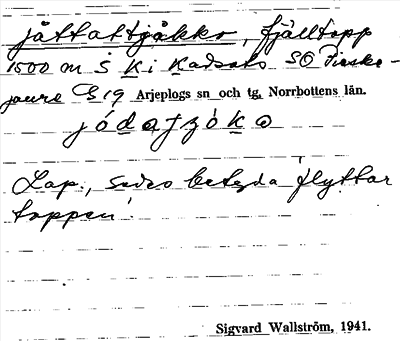 jåttattjåkko, fjälltopp
1500 m S K i Kadsaks SO Pieske-
jaure G 19 Arjeplogs sn och tg, Norrbottens län.
jódatzóko
Lap., sades betyda 'flyttar
toppen'.
Sigvard Wallström, 1941.